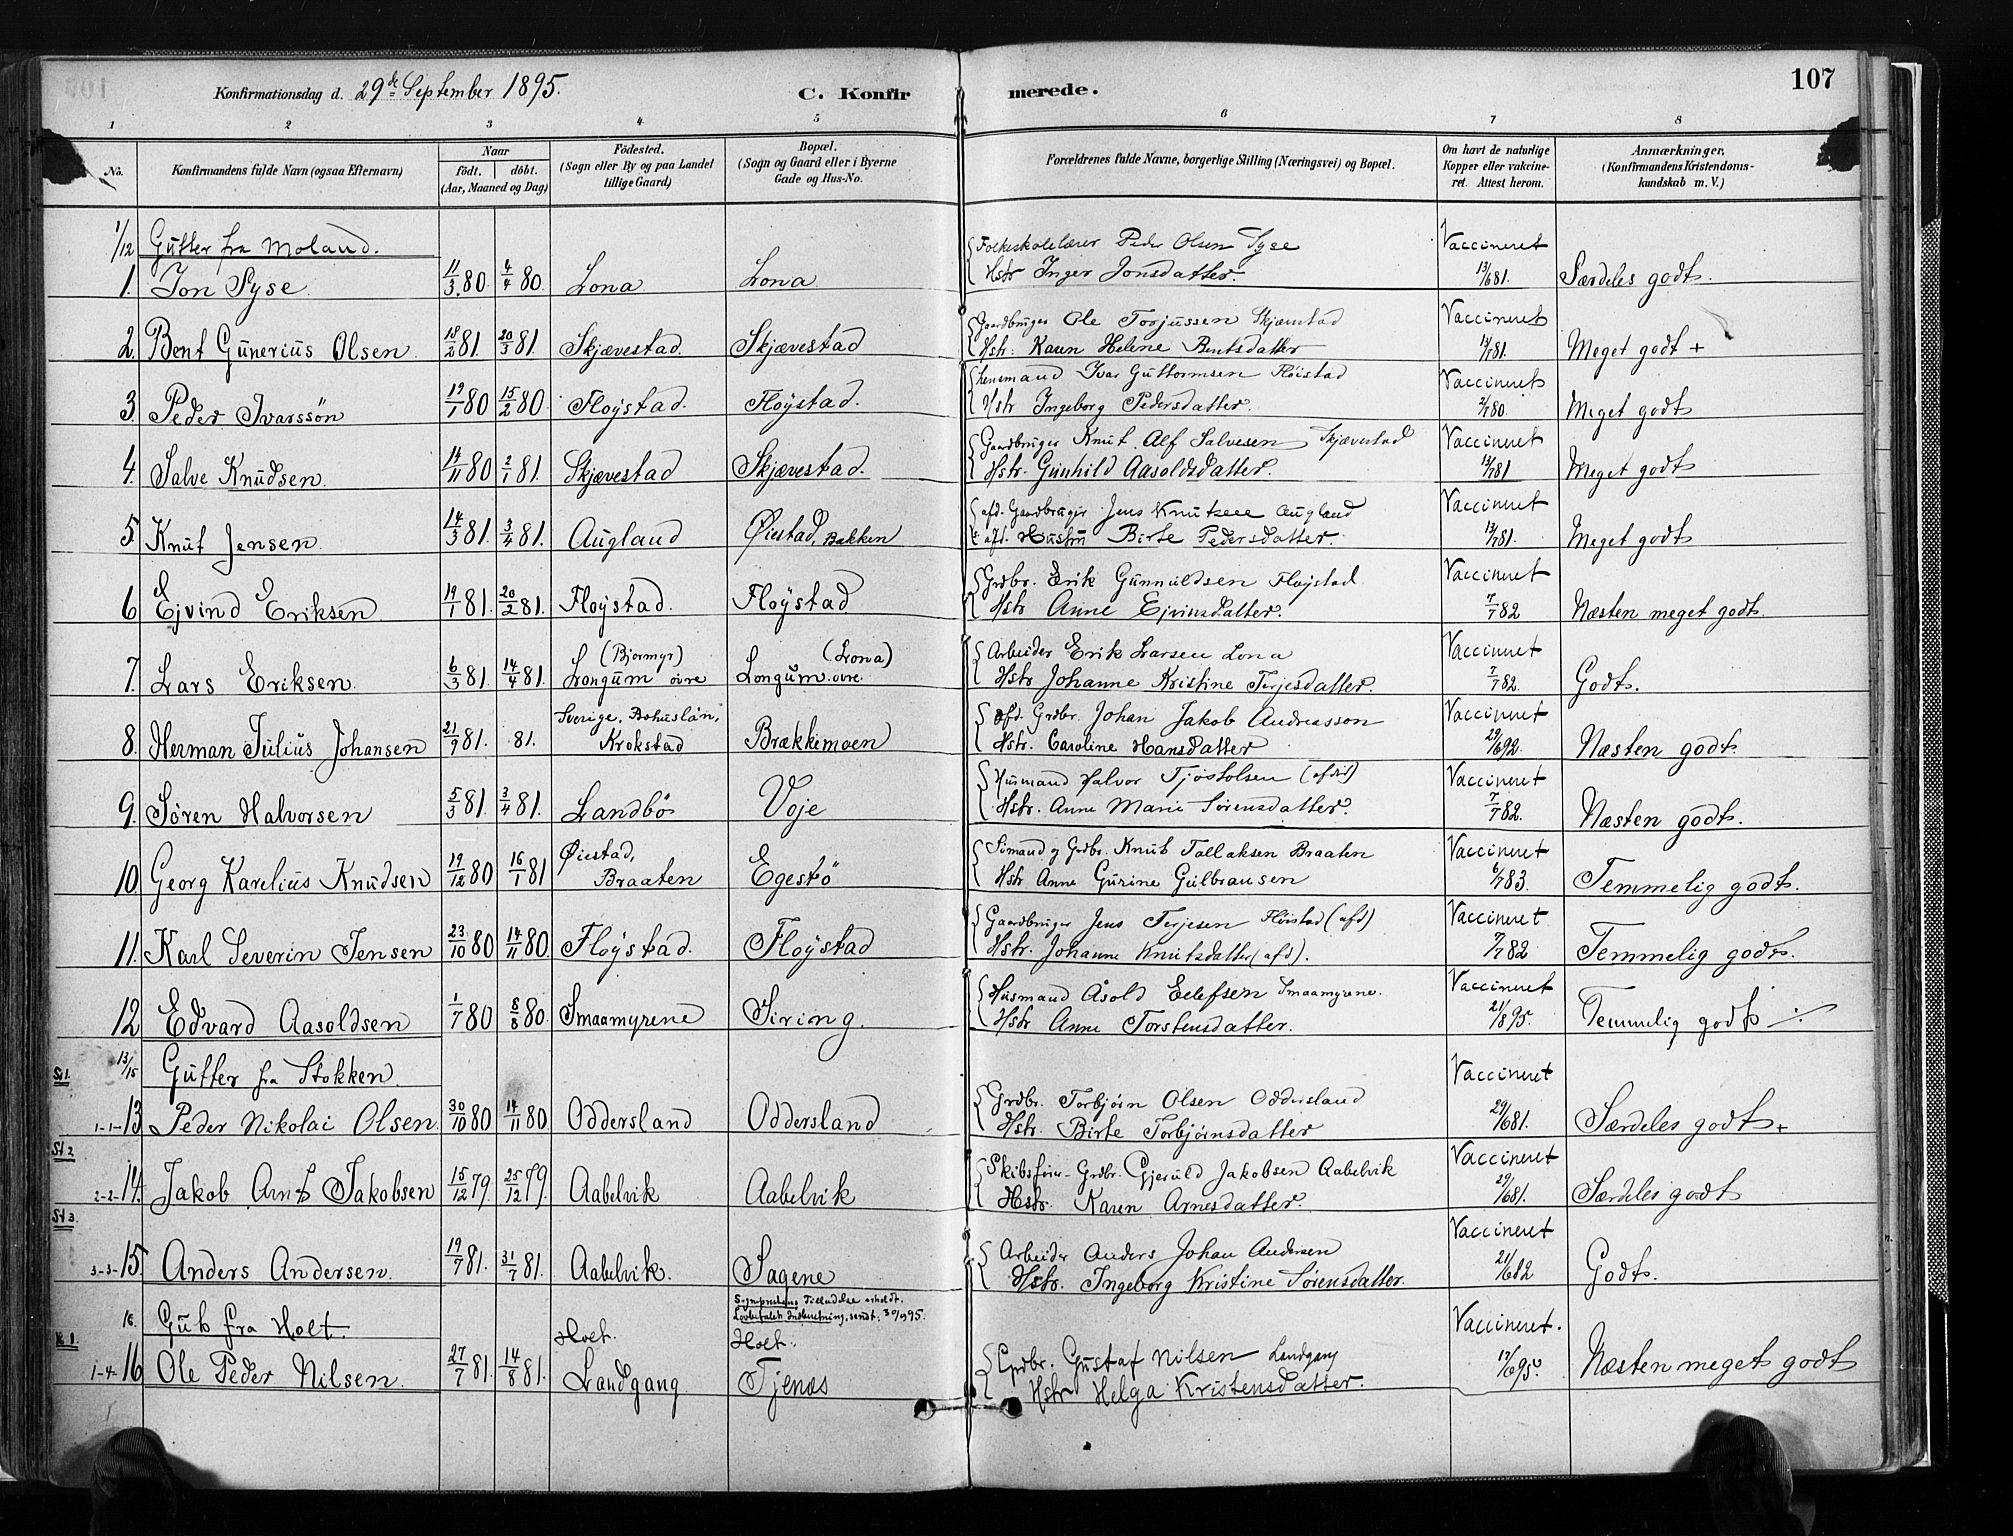 107
Konfirmationsdag d. 29de September 1895.
C. Konfirmerede.
1 2 3 4 5 6 7 8
No.
Konfirmandens fulde Navn (ogsaa Efternavn)
Naar
født. døbt.
(Aar, Maaned og Dag)
Fødested.
(Sogn eller By og paa Landet
tillige Gaard)
Bopæl.
(Sogn og Gaard eller i Byerne
Gade og Hus-No.
Forældrenes fulde Navne, borgerlige Stilling (Næringsvei) og Bopæl.
Om havt de naturlige
Kopper eller vakcine-
ret. Attest herom.
Anmærkninger.
(Konfirmandens Kristendoms-
kundskab m. V.)
1/12 Gutter fra Moland.
1. Jon Syse 11/3 80 4/4 80. Lona Lona Folkeskolelærer Peder Olsen Syse
Hstr Inger Jonsdatter. Vaccineret 13/6 81. Særdeles godt.
2. Bent Gunerius Olsen 18/2 81. 20/3 81. Skjævestad. Skjævestad Gaardbruger Ole Torjussen Skjævestad
Hstr. Karen Helene Bentsdatter Vaccineret 14/7 81. Meget godt +
3. Peder Ivarssön 19/1 80 15/2 80. Floÿstad. Floÿstad. Lensmand Ivar Guttormsen Flöistad
Hstr Ingeborg Pedersdatter. Vaccineret 2/7 80. Meget godt
4. Salve Knudsen. 14/11 80 2/1 81. Skjævestad Skjævestad. Gaardbruger Knut Alf Salvesen Skjævestad
Hstr. Gunhild Aasoldsdatter. Vaccineret 13/7 81 Meget godt
5. Knut Jensen. 14/3 81. 3/4 81. Augland Øiestad, Bakken afd. Gaardbruger Jens Knutsen Augland
& afd. Hustru Birte Pedersdatter. Vaccineret 13/7 81. Meget godt
6 Ejvind Eriksen 19/1 81. 20/2 81. Floÿstad. Floÿstad Grdbr. Erik Gunnuldsen Floÿstad
Hstr Anne Ejvinsdatter. Vaccineret 7/7 82 Næsten meget godt.
7. Lars Eriksen. 6/3 81. 14/4 81. (Bjormyr) Longum øvre (Lona) Longum øvre Arbeider Erik Larsen Lona
Hstr Johanne Kristine Terjesdatter. Vaccineret 7/7 82. Godt.
8. Herman Julius Johansen 21/9 81. 81. Sverige, Bohuslän, Krokstad Brækkemoen afd. Grdbr. Johan Jakob Andreasson
Hstr. Caroline Hansdatter Vaccineret 29/6 92. Næsten godt
9. Søren Halvorsen 5/3 81. 3/4 81. Landbö Voje Husmand Halvor Tjøstolsen (afdød)
Hstr. Anne Marie Sørensdatter. Vaccineret 7/7 82. Næsten godt.
10. Georg Karelius Knudsen 19/12 80 16/1 81 Øiestad, Braaten Egestö Sømand og Grdbr. Knut Tallaksen Braaten
Hstr Anne Gurine Gulbransen Vaccineret 6/7 83. Temmelig godt.
11. Karl Severin Jensen 23/10 80 14/11 80. Floÿstad. Floÿstad Gaardbruger Jens Terjesen Flöistad (afd)
Hstr. Johanne Knutsdatter (afd). Vaccineret 7/7 82 Temmelig godt.
12 Edvard Aasoldsen 1/7 80 8/8 80. Smaamyrene Siring. Husmand Åsold Eelefsen Smaamyrene.
Hstr Anne Torstensdatter. Vaccineret 21/8 95. Temmelig godt ./.
13/15 Gutter fra Stokken.
St 1.
1-1-13 Peder Nikolai Olsen. 30/10 80 14/11 80 Oddersland Oddersland Grdbr. Torbjørn Olsen Oddersland
Hstr. Birte Torbjörnsdatter Vaccineret 29/6 81. Særdeles godt +
St 2
2-2-14. Jakob Arnt Jakobsen 15/12 79. 25/12 79. Aabelvik Aabelvik Grdbr. Gjeruld Jakobsen Aabelvik
Hstr. Karen Arnesdatter. Vaccineret 29/6 81. Særdeles godt
St 3.
3-3-15. Anders Andersen. 19/7 81. 31/7 81. Aabelvik. Sagene Arbeider Anders Johan Andersen
Hstr. Ingeborg Kristine Sørensdatter. Vaccineret 21/6 82 Godt.
16. Gut fra Holt. Sognprestens Tilladelse erholdt.
Lovbefalet Indberetning sendt. 30/9 95.
H 1.
1-4-16 Ole Peder Nilsen. 27/7 81. 14/8 81. Holt. Landgang Holt. Tjenæs Grdbr. Gustaf Nilsen Landgang
Hstr Helga Kristensdatter. Vaccineret. 17/6 95. Næsten meget godt